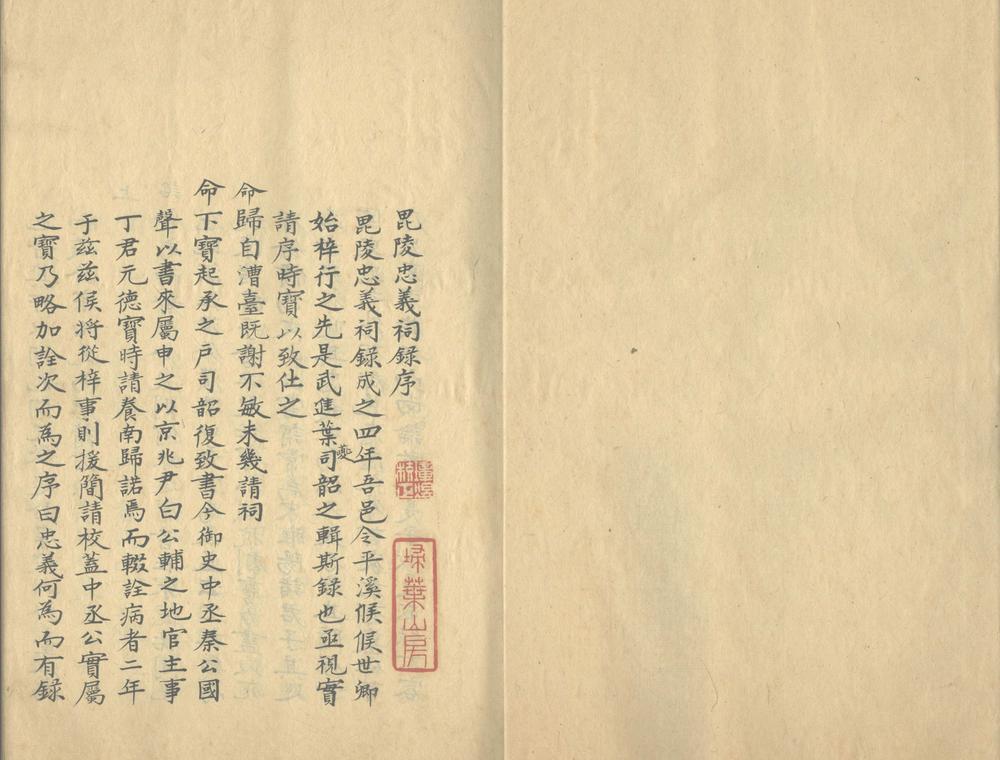 毘陵忠義祠錄序
毘陵忠義祠錄成之四年吾邑令平溪侯侯世卿
始梓行之先是武進葉司韶之輯斯錄也亟視實
夔
請序時寶以致仕之
命歸自漕臺既謝不敏未幾請祠
命下寶起承之戸司韶復致書今御史中丞秦公國
聲以書來屬申之以京兆尹白公輔之地官主事
丁君元德寶時請養南歸諾焉而輟詮病者二年
于茲茲侯将從梓事則援簡請校蓋中丞公實屬
之寶乃略加詮次而為之序曰忠義何為而有録
掃葉山房